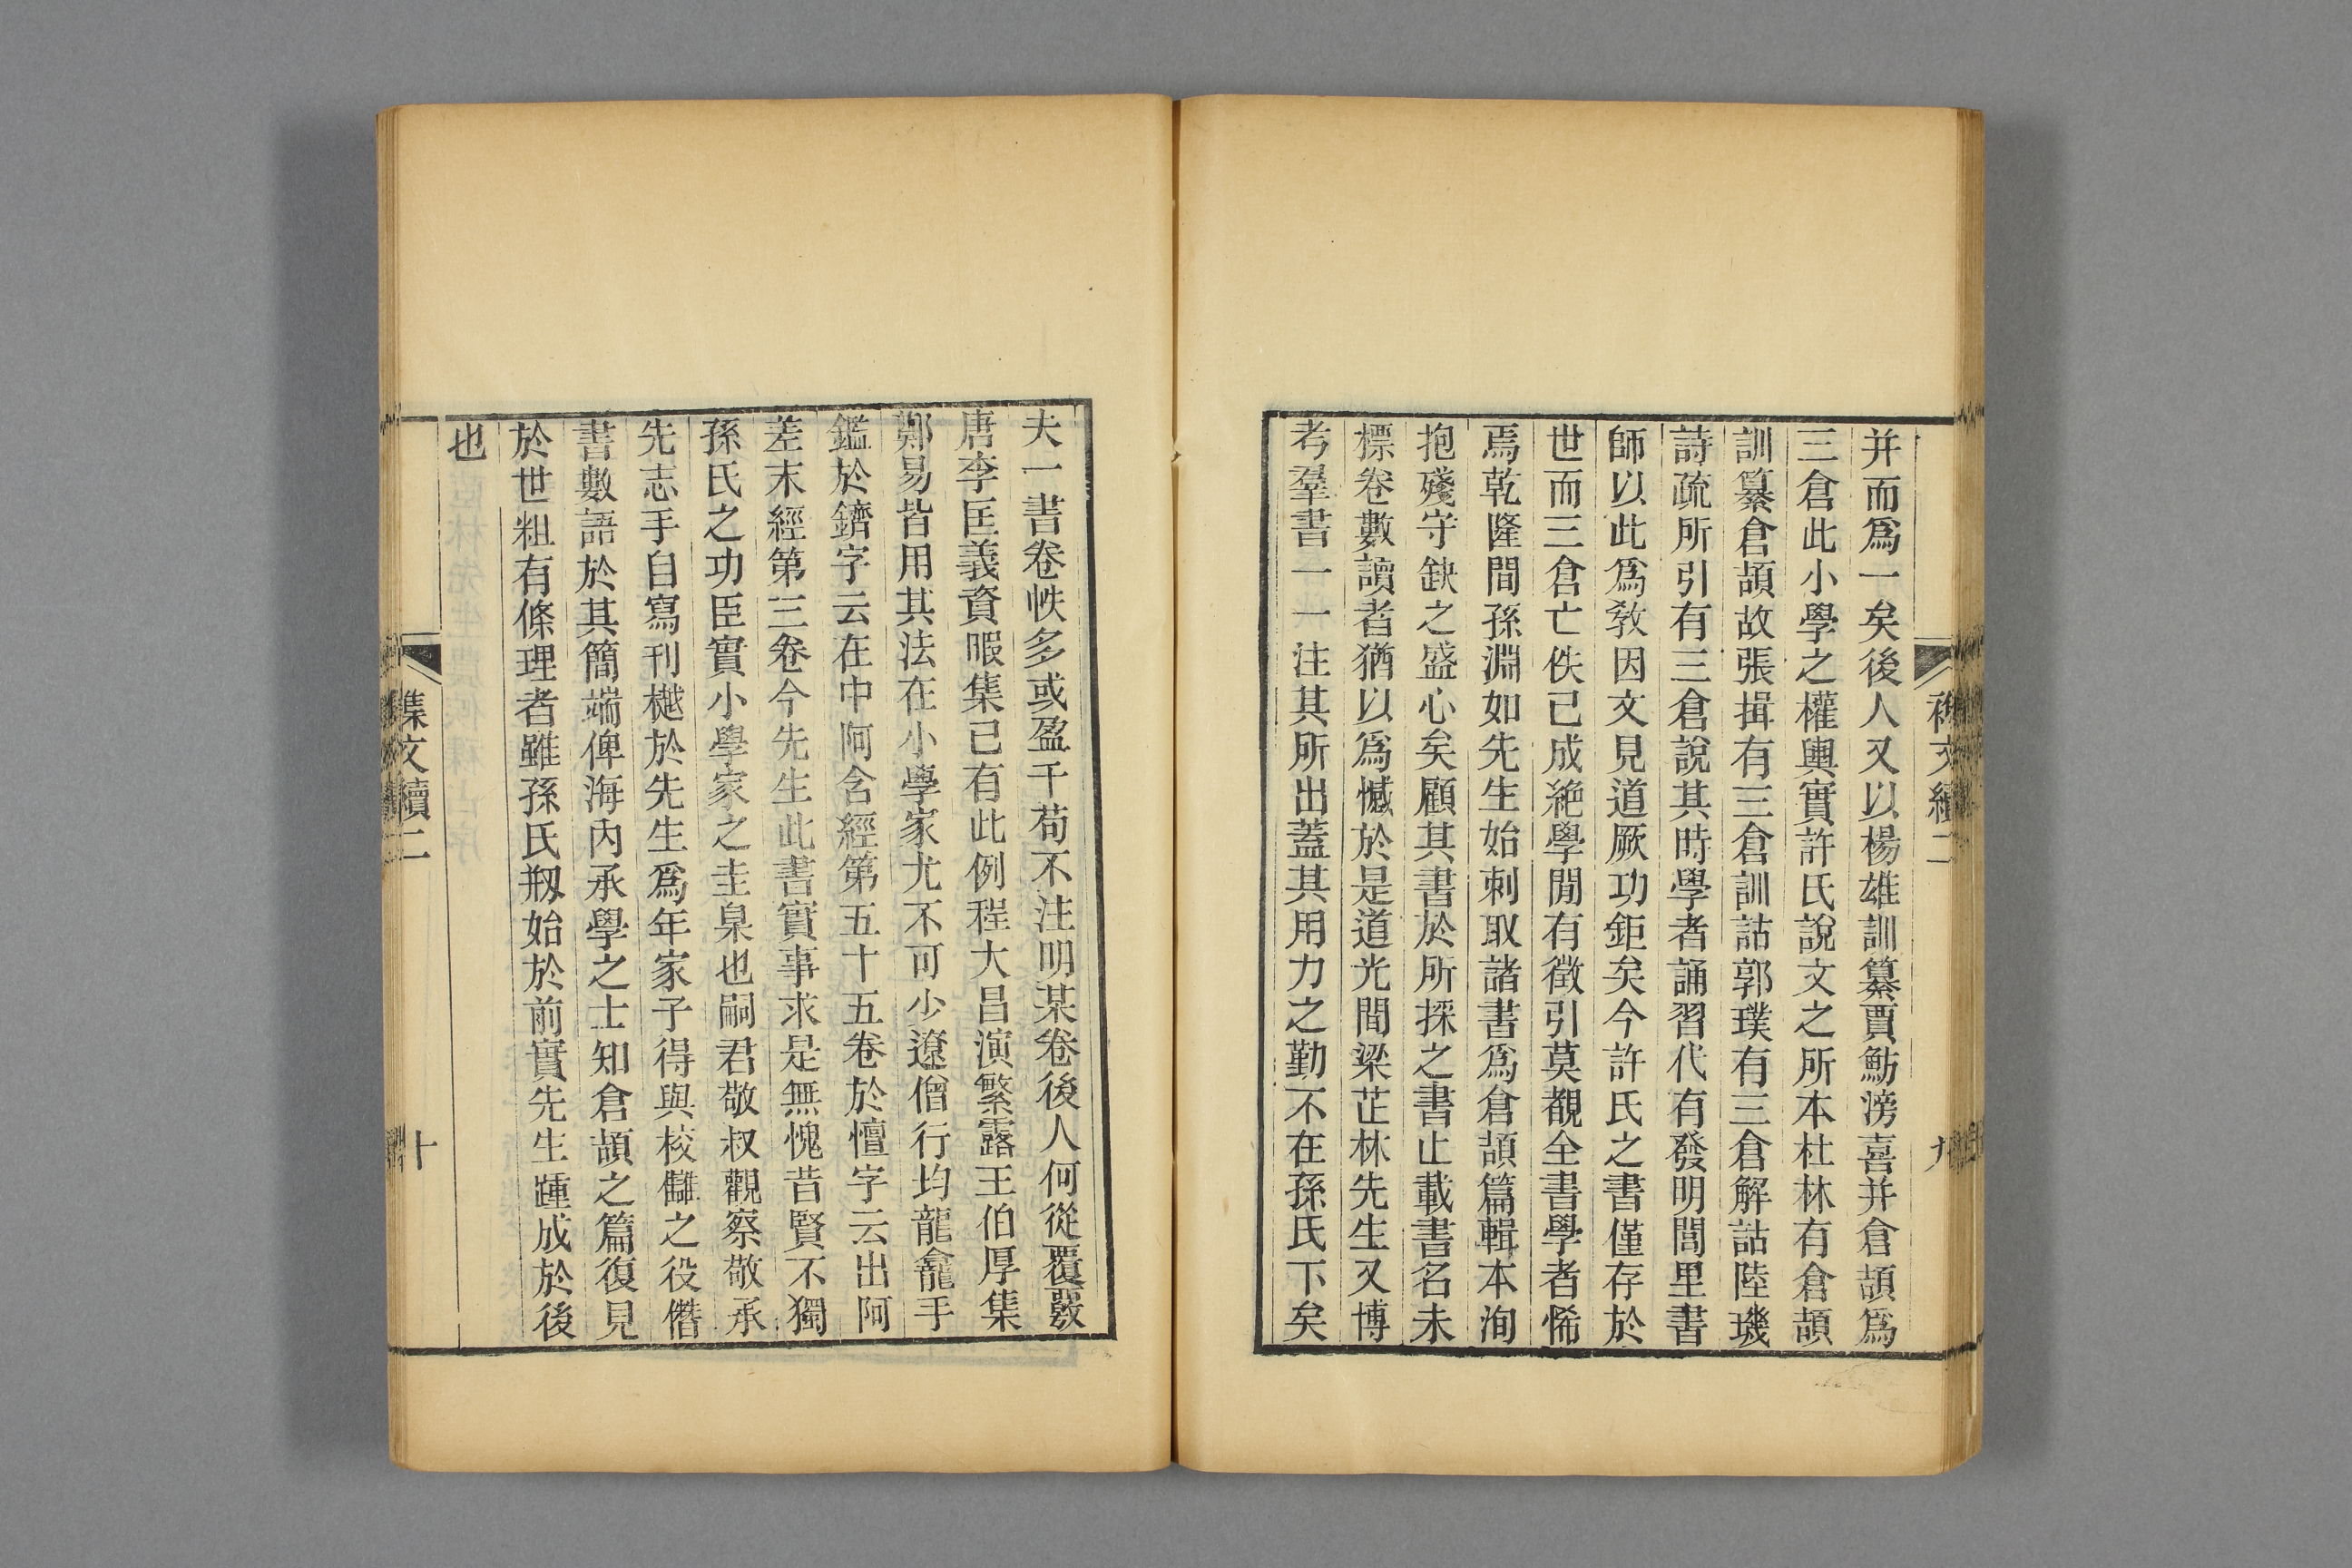 并而爲一矣後人又以楊雄訓纂賈魴滂喜并倉頡爲
三倉此小學之權輿實許氏說文之所本杜林有倉頡
訓纂倉頡故張揖有三倉訓詁郭璞有三倉解詁陸璣
詩疏所引有三倉說其時學者誦習代有發明閭里書
師以此爲敎因文見道厥功鉅矣今許氏之書僅存於
世而三倉亡佚已成絶學閒有徵引莫覩全書學者悕
焉乾隆間孫淵如先生始刺取諸書爲倉頡篇輯本洵
抱殘守缺之盛心矣顧其書於所採之書止載書名未
標卷數讀者猶以爲憾於是道光間梁茝林先生又博
考羣書一一注其所出蓋其用力之勤不在孫氏下矣
九
夫一書卷帙多或盈千苟不注明某卷後人何從覆覈
唐李匡義資暇集已有此例程大昌演繁露王伯厚集
鄭易皆用其法在小學家尤不可少遼僧行均龍龕手
鑑於鑇字云在中阿含經第五十五卷於憻字云出阿
差末經第三卷今先生此書實事求是無愧昔賢不獨
孫氏之功臣實小學家之圭臬也嗣君敬叔觀察敬承
先志手自寫刊樾於先生爲年家子得與校讎之役僭
書數語於其簡端俾海內承學之士知倉頡之篇復見
於世粗有條理者雖孫氏剏始於前實先生踵成於後
也
集文續二
十